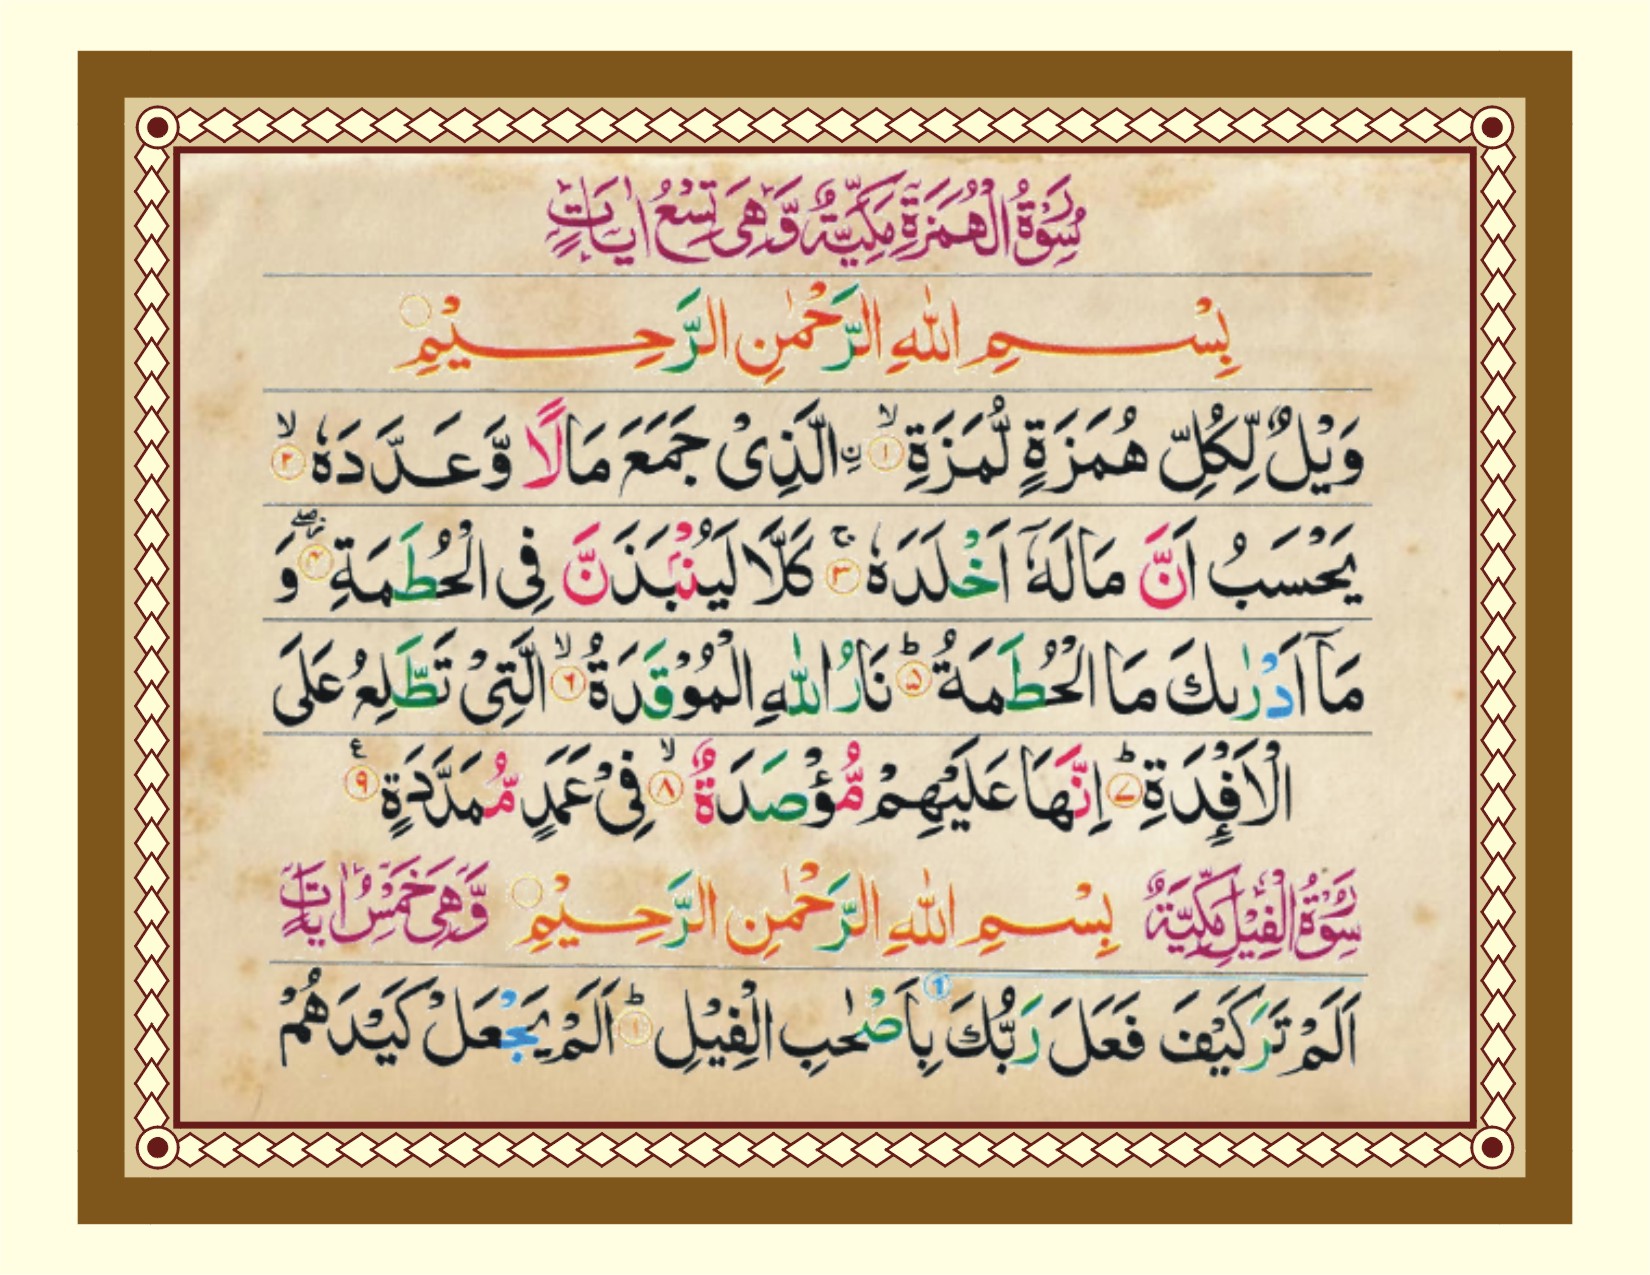 سُوْرَةُ الْهُمَزَةِ مَكِّيَّةٌ وَّهِىَ تِسْعُ اٰيَاتٍ
بِسْمِ اللّٰهِ الرَّحْمٰنِ الرَّحِيْمِ ○
وَيْلٌ لِّكُلِّ هُمَزَةٍ لُّمَزَةِ ۙ‏﴿۱﴾ ۨالَّذِىْ جَمَعَ مَالًا وَّعَدَّدَهٗ ۙ‏﴿۲﴾
يَحْسَبُ اَنَّ مَالَهٗۤ اَخْلَدَهٗ ۚ‏﴿۳﴾ كَلَّا لَيُنْۢبَذَنَّ فِى الْحُطَمَةِ ۖ‏﴿۴﴾ وَ
مَاۤ اَدْرٰىكَ مَا الْحُطَمَةُ ؕ‏﴿۵﴾ نَارُ اللّٰهِ الْمُوْقَدَةُ ۙ‏﴿۶﴾ الَّتِىْ تَطَّلِعُ عَلَى
الْاَفْـِٕدَةِ ؕ‏﴿۷﴾ اِنَّهَا عَلَيْهِمْ مُّؤْصَدَةٌ ۙ‏﴿۸﴾ فِىْ عَمَدٍ مُّمَدَّدَةٍ ‏﴿۹﴾ ع
سُوْرَةُ الْفِيْلِ مَكِّيَّةٌ بِسْمِ اللّٰهِ الرَّحْمٰنِ الرَّحِيْمِ ○ وَّهِىَ خَمْسُ اٰيَاتٍ
اَلَمْ تَرَ كَيْفَ فَعَلَ رَبُّكَ ① بِاَصْحٰبِ الْفِيْلِ ؕ‏﴿۱﴾ اَلَمْ يَجْعَلْ كَيْدَهُمْ